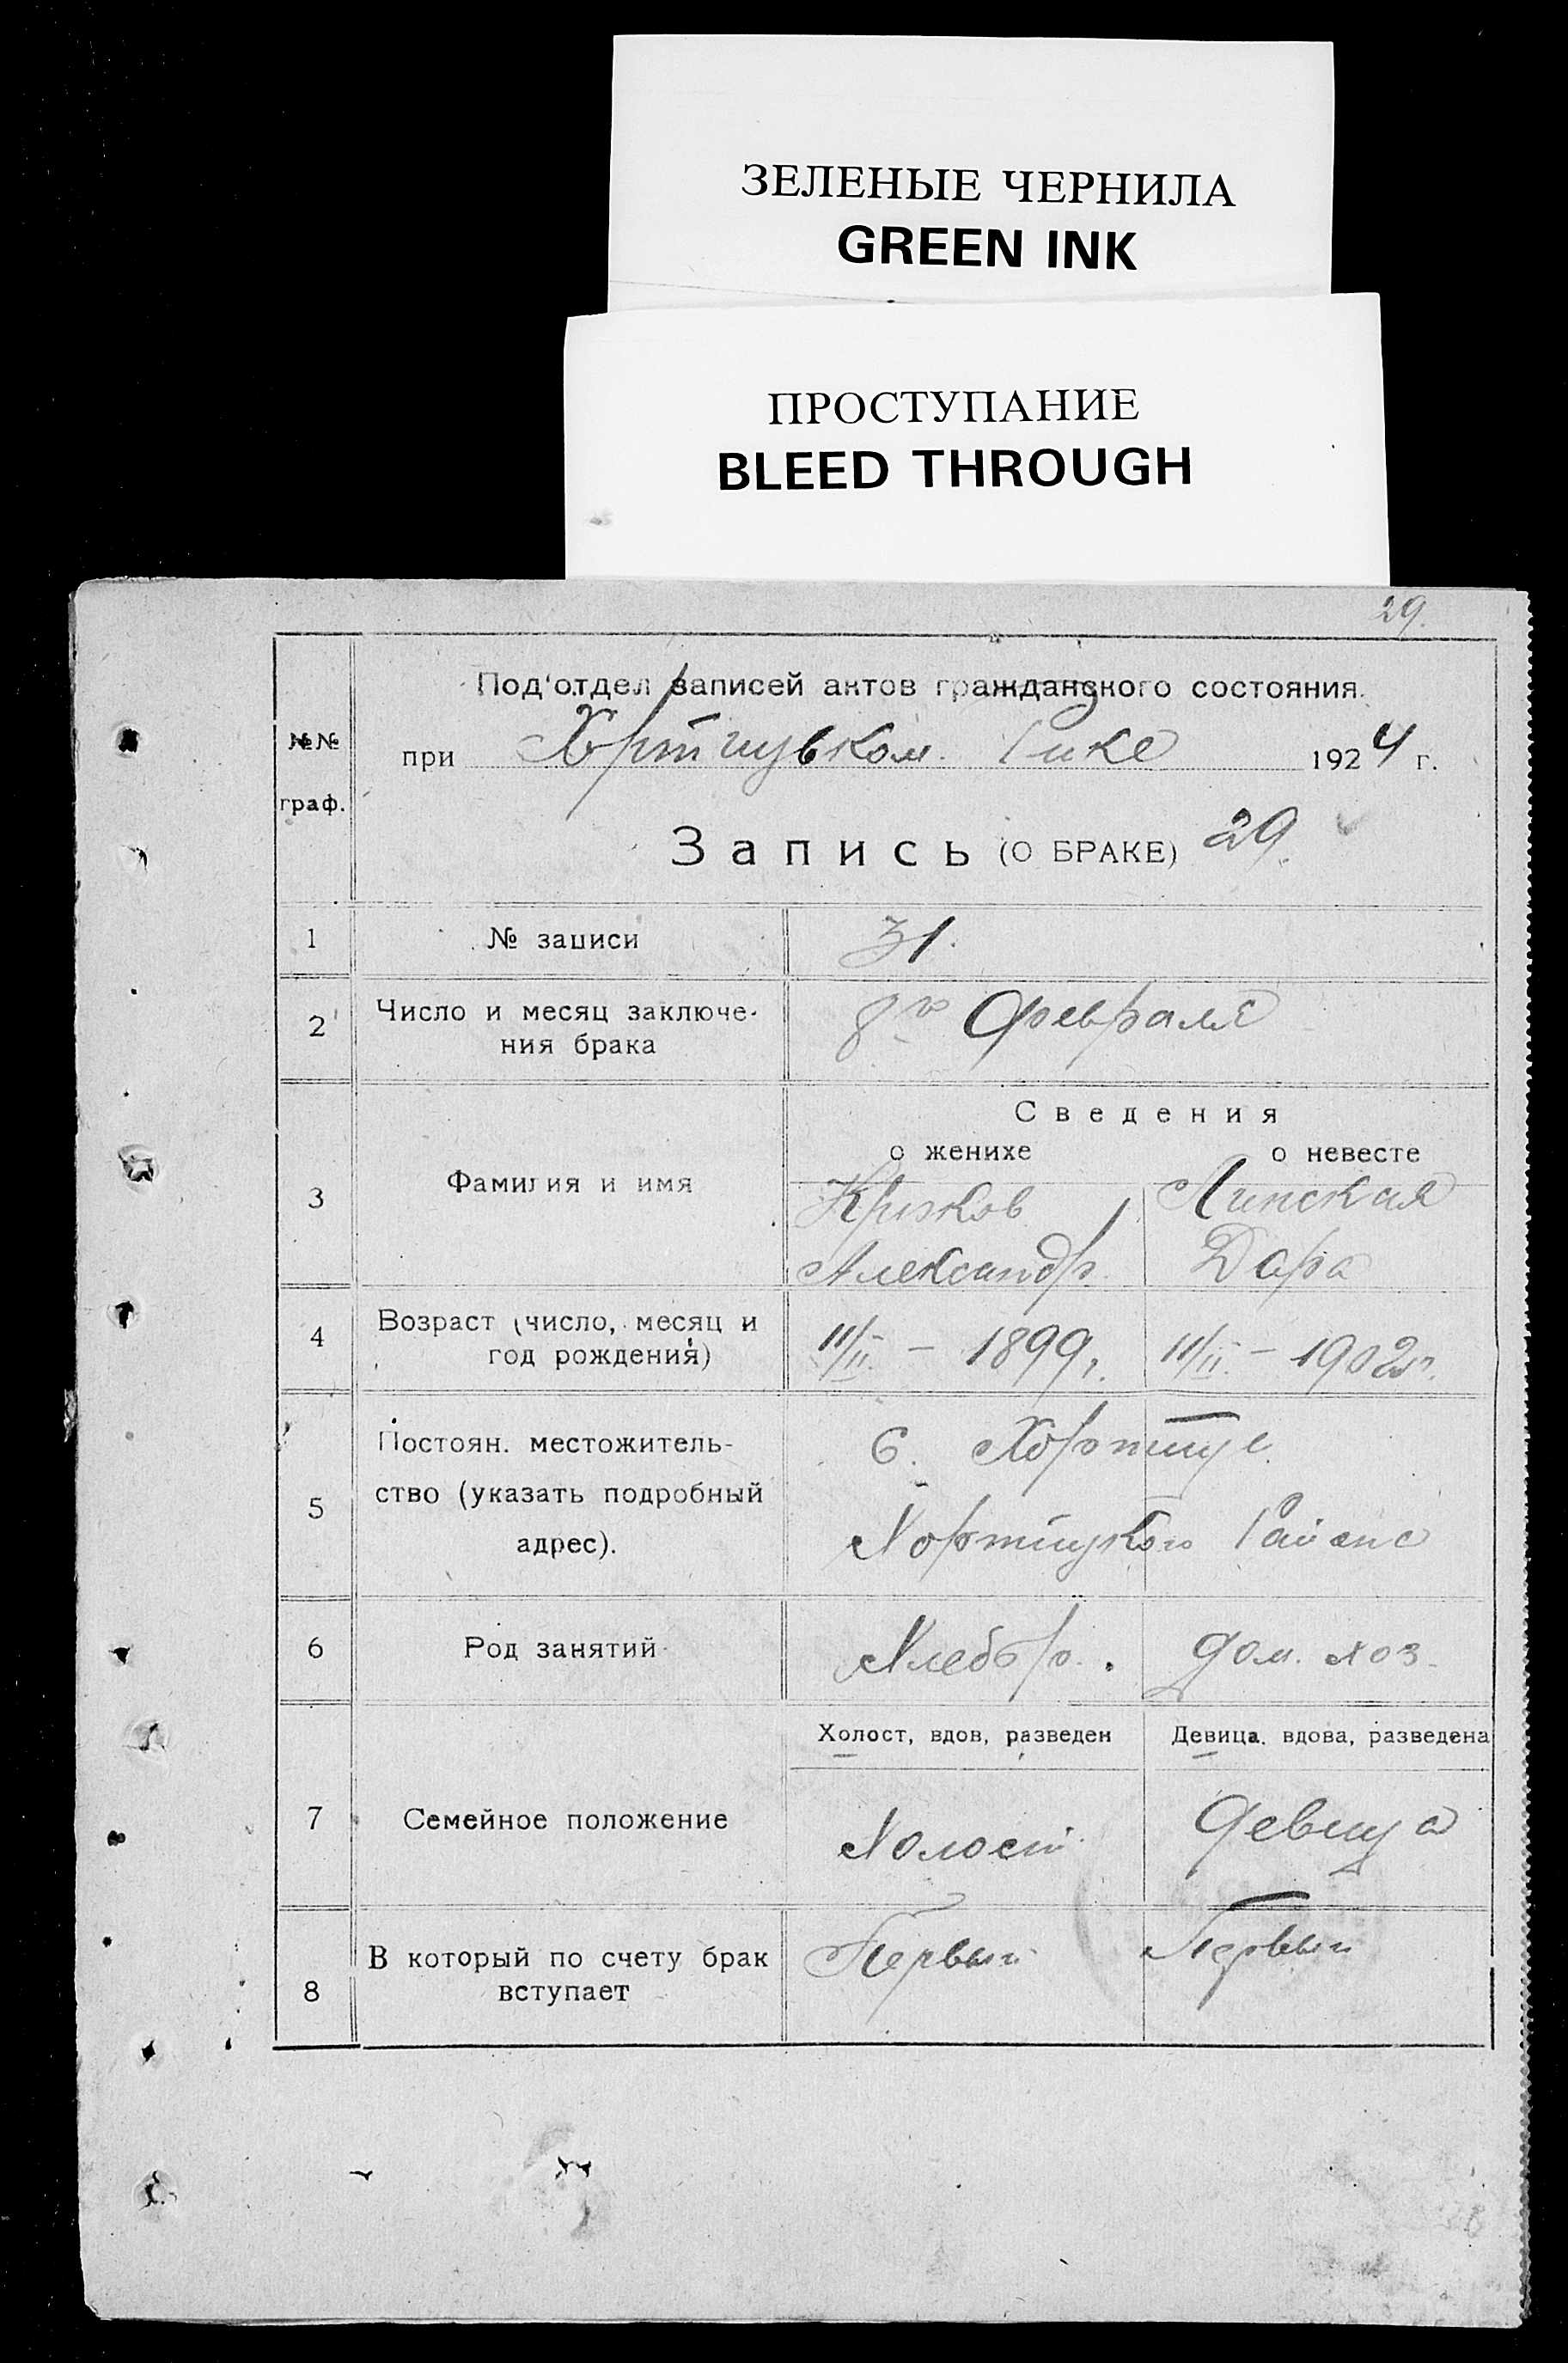 ЗЕЛЕНЫЕ ЧЕРНИЛА
GREEN INK
ПРОСТУПАНИЕ
BLEED THROUGH
29.
№№ граф.
Под'отдел записей актов гражданского состояния.
при Хортицьком Рике 1924 г.
Запись (О БРАКЕ) 29.
1 № записи 31.
2 Число и месяц заключе-
ния брака 8го Февраля
Сведения
о женихе о невесте
3 Фамилия и имя
Линская
Александр Дара
4 Возраст (число, месяц и
год рождения) 11/II. – 1899г. 11/II. – 1902г.
5 Постоян. местожитель-
ство (указать подробный
адрес).
С. Хортице
Хортицкого Района
6 Род занятий Хлебор. дом. хоз.
Холост, вдов, разведен Девица, вдова, разведена
7 Семейное положение Холост девица
8 В который по счету брак
вступает Первый Первый